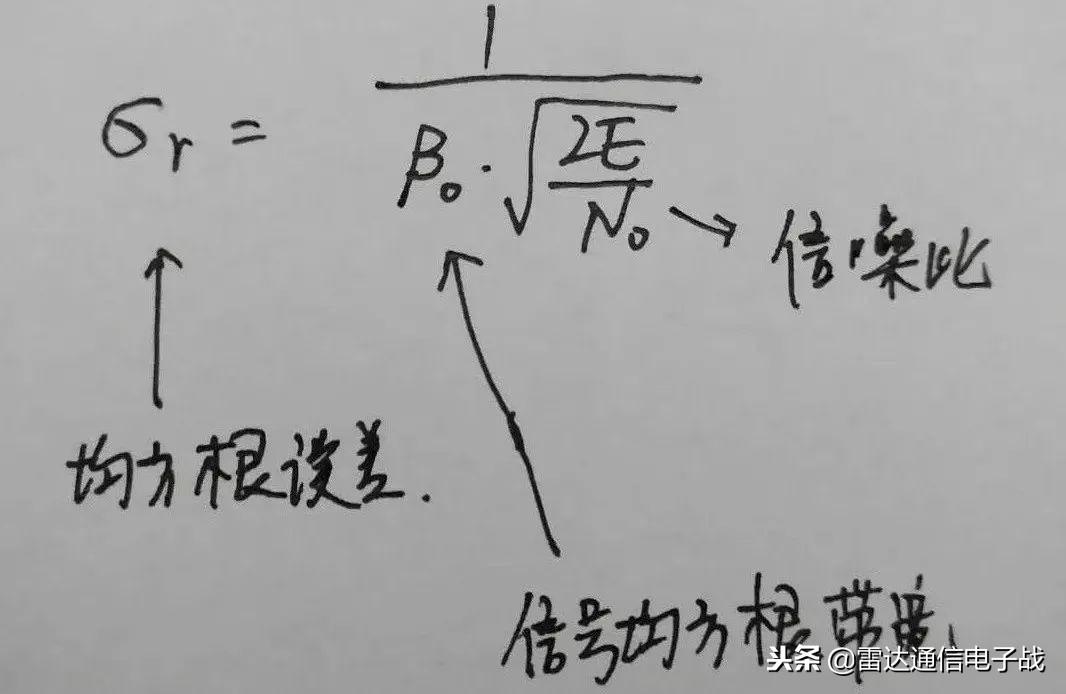 σr = 1 / (β₀ · √(2E / N₀))
信噪比
均方根误差.
信号均方根带宽
头条 @雷达通信电子战